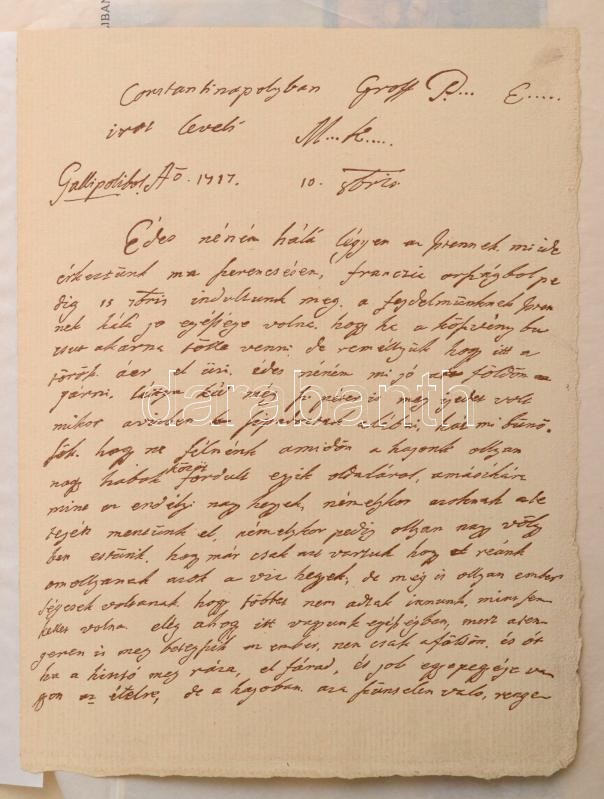 LIBAN
Constantinapolyban Groff P... E.....
irot leveli M... K.....
Gallipolibol Aō. 1717. 10. 8bris
Édes néném hálá légyen az Istennek, mi ide
érkeztünk ma szerencsésen, franczia országbol pe
dig 15 7bris indultunk meg, a fejdelmünknek Isten
nek hálá jo egésége volna, hogy ha a köszvény bu
csut akarna tölle venni, de reméllyük hogy itt a
török aer el üzi, édes néném mi jó a földön
járni, lássa kéd még sz péter is meg ijedet volt
mikor a vizben
sök. hogy ne félnénk amidön a hajonk ollyan
nagy habok között fordult egyik oldaláról, a másikára
mint az erdélyi nagy hegyek, némelykor azoknak a te
tején mentünk el, némelykor pedig ollyan nagy völgy
ben estünk, hogy már csak azt vartuk hogy reánk
omollyanak azok a viz hegyek, de még is ollyan ember
ségesek voltanak, hogy többet nem adtak innunk, mint sem
kellet volna. elég a hogy itt vagyunk egésségben, mert a ten
geren is meg betegszik az ember, nem csak a földön, és ot
ha a hintó meg rázza, el fárad, és job egyepegyéje va
gyon az ételre, de a hajoban aza szüntelen valo, renge
darabanth